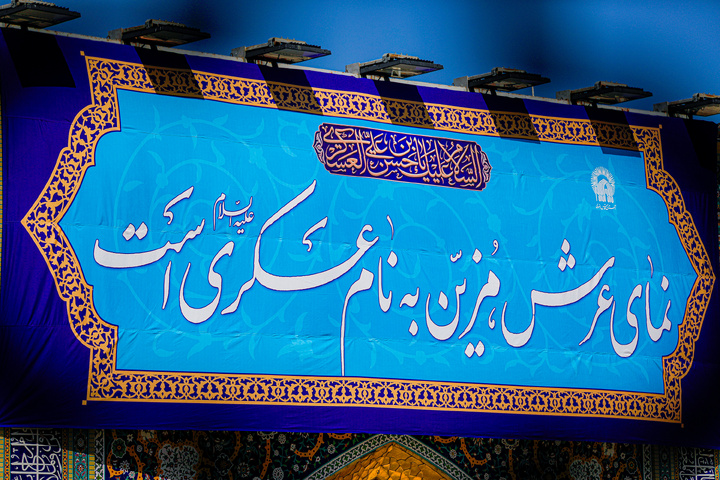 السلام علیك یا حسن بن علي العسکري
نمای عرش مُزیّن به نام عسکری علیه السلام است